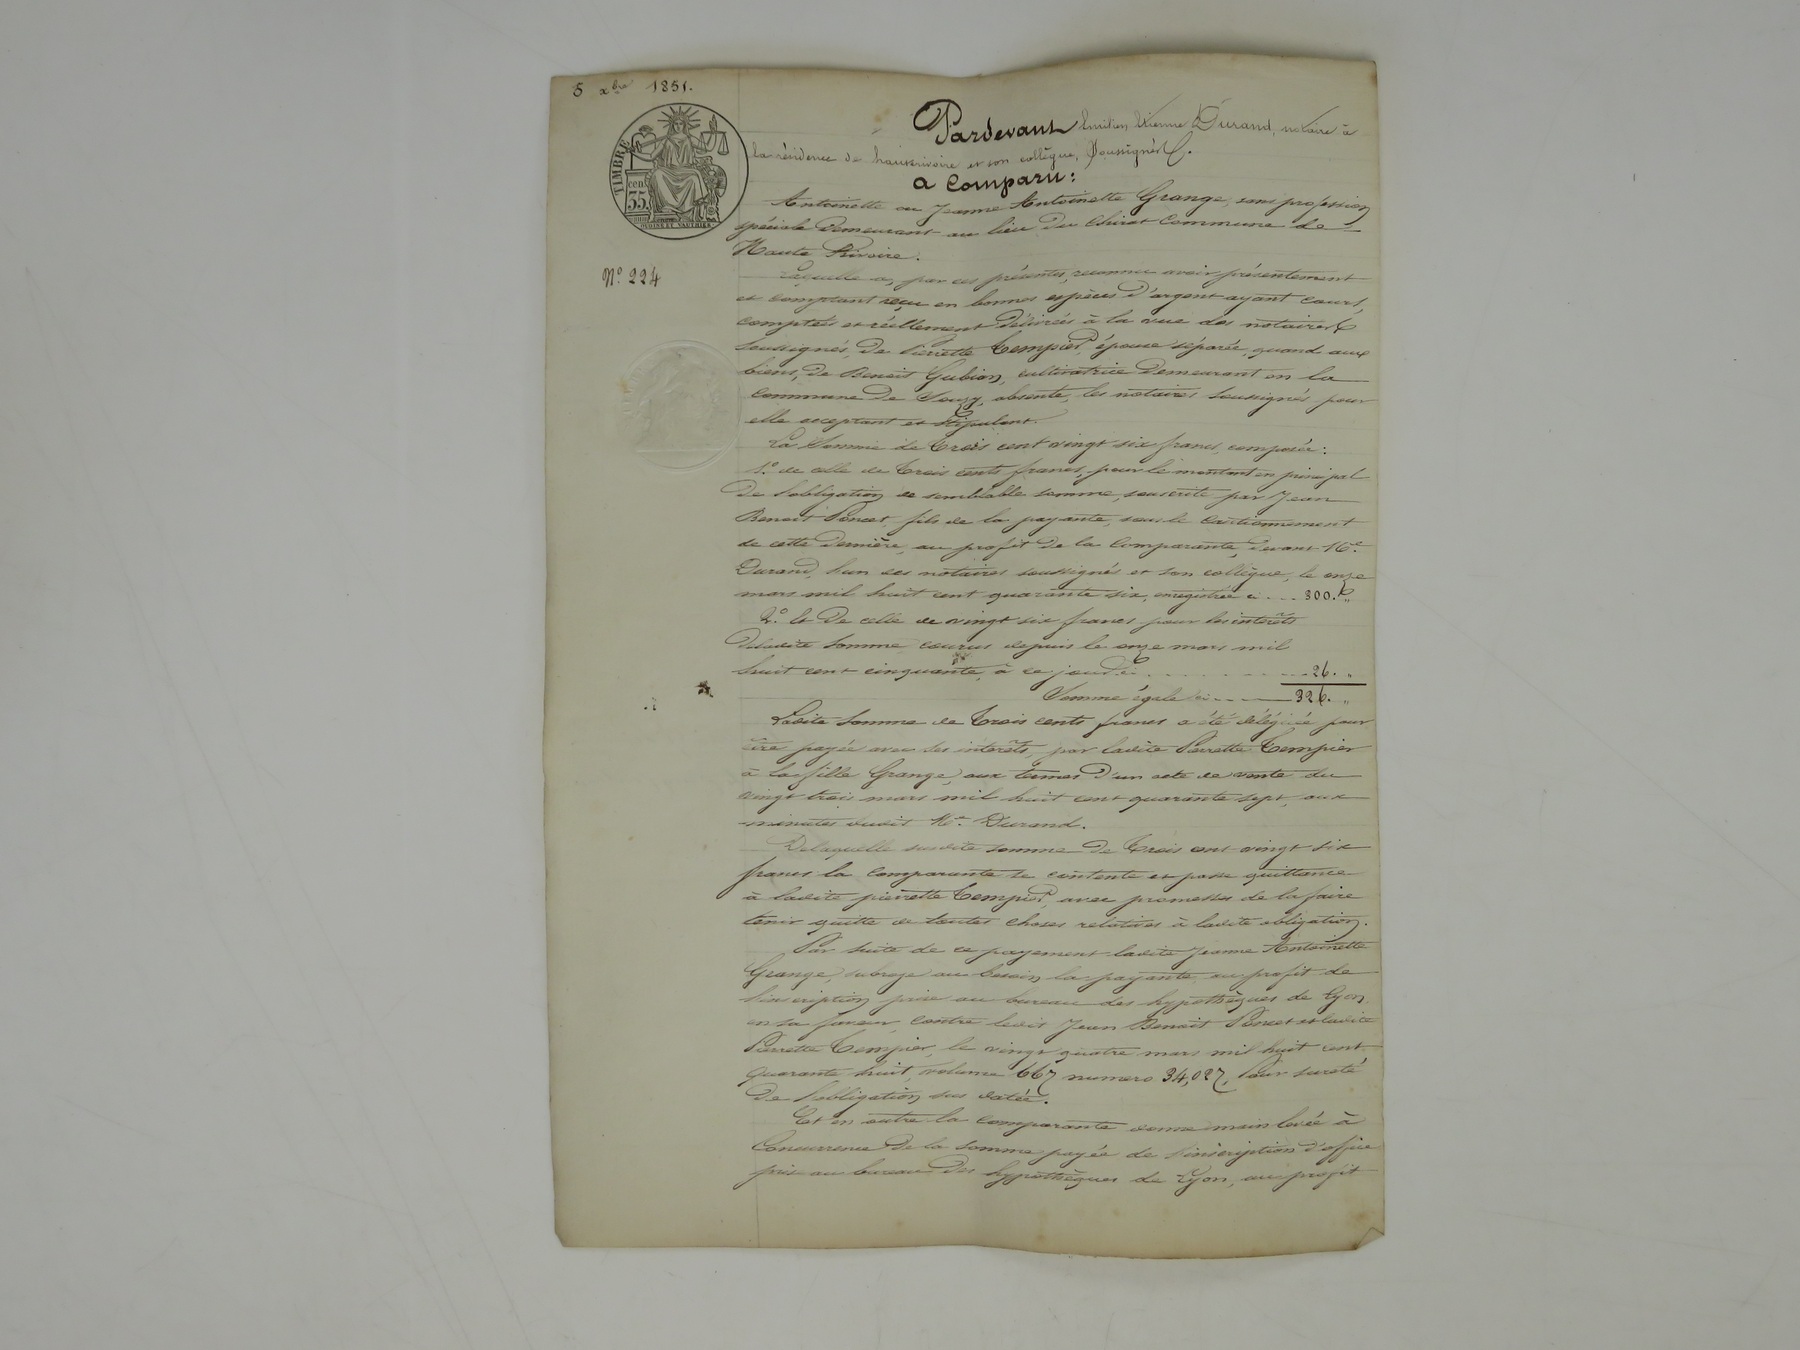 5 xbre 1851.
TIMBRE
cen.
35
Nº 224
Pardevant Emilien Etienne Durand, notaire à
la résidence de hauterivoire et son collègue, Soussignés.
a Comparu:
Antoinette ou Jeanne Antoinette Grange, sans profession
spéciale demeurant au lieu du Commune de
Haute Rivoire.
Laquelle a, par ces présentes, reconnu avoir présentement
et comptant reçu en bonnes espèces d'argent ayant cours,
comptés et réellement délivrés à la vue des notaires
soussignés, de Pierrette Tempier, épouse séparée, quand aux
biens, de Benoit Gubian, cultivatrice demeurant en la
Commune de Souzy, absente, les notaires soussignés pour
elle acceptant et stipulant.
La Somme de Trois cent vingt six francs, composée:
1º. de celle de Trois cents francs, pour le montant en principal
de l'obligation de semblable somme, souscrite par Jean
Benoit Poncet, fils de la payante, sous le cautionnement
de cette dernière, au profit de la Comparante, devant Me.
Durand, l'un des notaires soussignés et son collègue, le onze
mars mil huit cent quarante six, enregistrée ... 300. "
2º. Et de celle de vingt six francs pour les intérêts
de ladite somme courus depuis le onze mars mil
huit cent cinquante, à ce jour ... 26. "
Somme égale ... 326. "
Ladite Somme de Trois cents francs a été déléguée pour
être payée avec ses intérêts, par ladite Pierrette Tempier
à la fille Grange, aux termes d'un acte de vente du
vingt trois mars mil huit cent quarante sept, aux
minutes dudit Me. Durand.
De laquelle susdite somme de Trois cent vingt six
francs la Comparante se contente et passe quittance
à ladite pierrette Tempier, avec promesses de la faire
tenir quitte de toutes choses relatives à ladite obligation.
Par suite de ce payement ladite Jeanne Antoinette
Grange, subroge au besoin la payante, au profit de
l'inscription prise au bureau des hypothèques de Lyon,
en sa faveur, contre ledit Jean Benoit Poncet et ladite
Pierrette Tempier, le vingt quatre mars mil huit cent
quarante huit, volume 667 numero 34,027, Pour sureté
de l'obligation sus datée.
Et en outre la comparante donne main levée à
Concurrence de la somme payée de l'inscription d'office
prise au bureau des hypothèques de Lyon, au profit